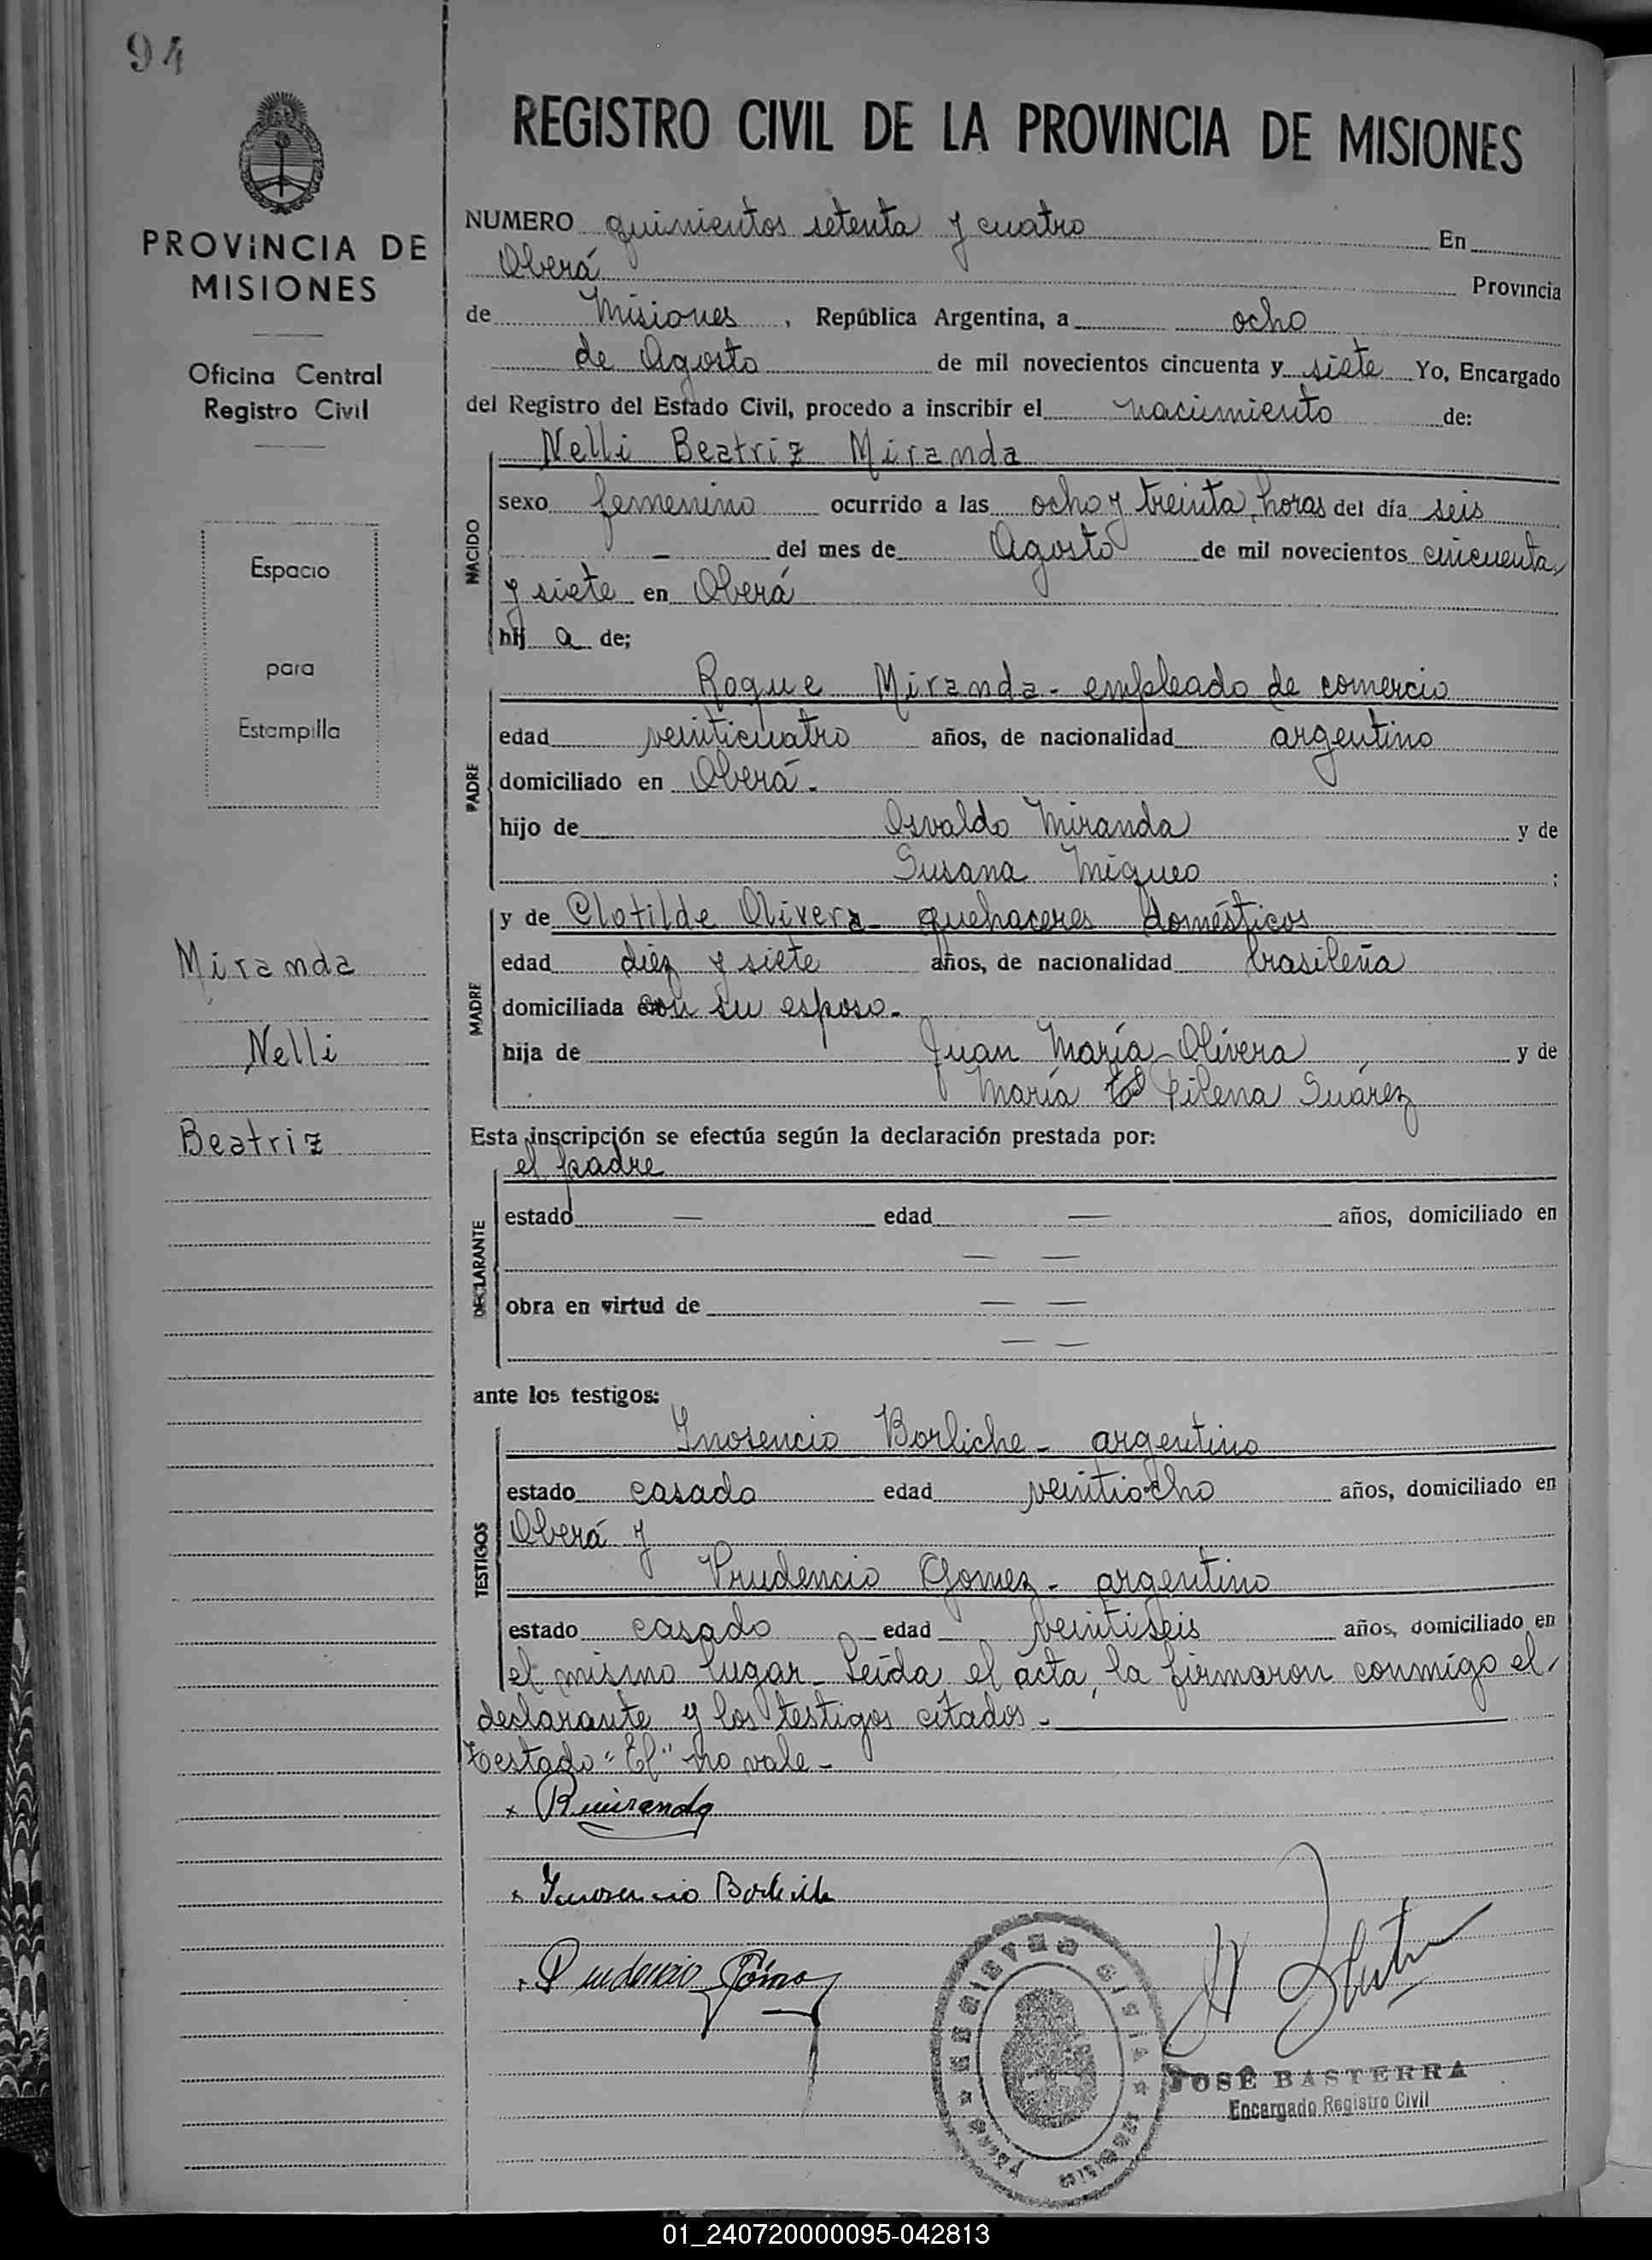 94
PROVINCIA DE
MISIONES
Oficina Central
Registro Civil
Espacio
para
Estampilla
Miranda
Nelli
Beatriz
REGISTRO CIVIL DE LA PROVINCIA DE MISIONES
NUMERO quinientos setenta y cuatro En
Oberá Provincia
de Misiones, República Argentina, a ocho
de Agosto de mil novecientos cincuenta y siete Yo, Encargado
del Registro del Estado Civil, procedo a inscribir el nacimiento de:
Nelli Beatriz Miranda
NACIDO
sexo femenino ocurrido a las ocho y treinta horas del día seis
— del mes de Agosto de mil novecientos cincuenta
y siete en Oberá
hij a de;
Roque Miranda - empleado de comercio
PADRE
edad veinticuatro años, de nacionalidad argentino
domiciliado en Oberá.
hijo de Osvaldo Miranda y de
Susana Miqueo ;
y de Clotilde Olivera - quehaceres domésticos
MADRE
edad diez y siete años, de nacionalidad brasileña
domiciliada con su esposo.
hija de Juan María Olivera y de
María El Filena Suárez
Esta inscripción se efectúa según la declaración prestada por:
el padre
DECLARANTE
estado — edad — años, domiciliado en
— —
obra en virtud de — —
— —
ante los testigos:
Inosencio Borliche - argentino
TESTIGOS
estado casado edad veintiocho años, domiciliado en
Oberá y
Prudencio Gomez - argentino
estado casado edad veintiseis años, domiciliado en
el mismo lugar - Leída el acta, la firmaron conmigo el
declarante y los testigos citados.
Testado "El" no vale -
x Rmiranda
x Inosencio Borliche
x Prudencio Gómez
JOSÉ BASTERRA
Encargado Registro Civil
01_240720000095-042813